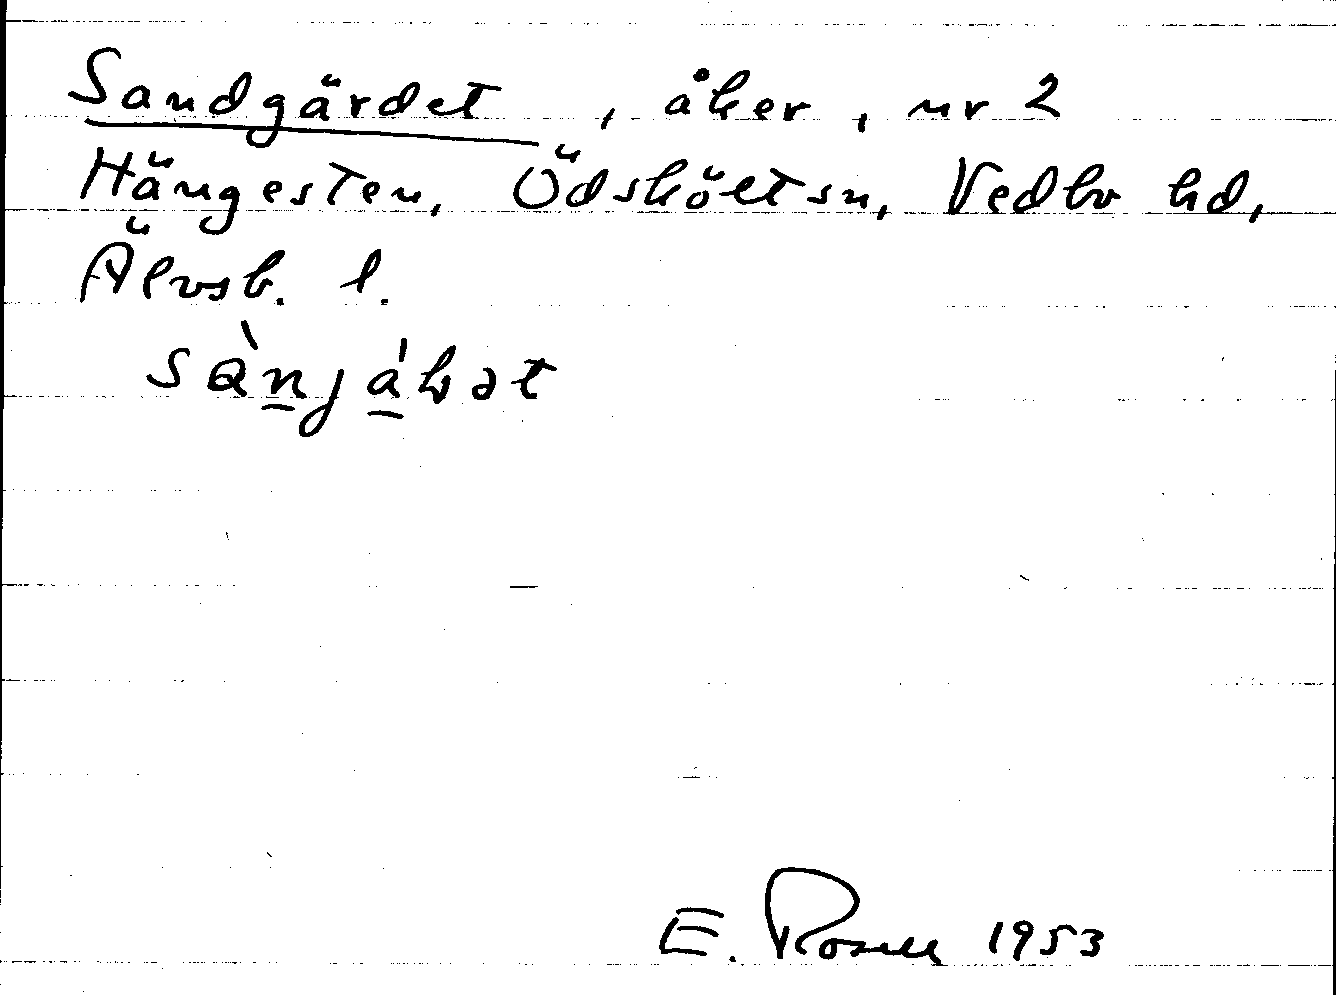 Sandgärdet, åker, nr 2
Hängesten, Ödskölt sn, Vedbo hd,
Älvsb. l.
E. Rosell 1953